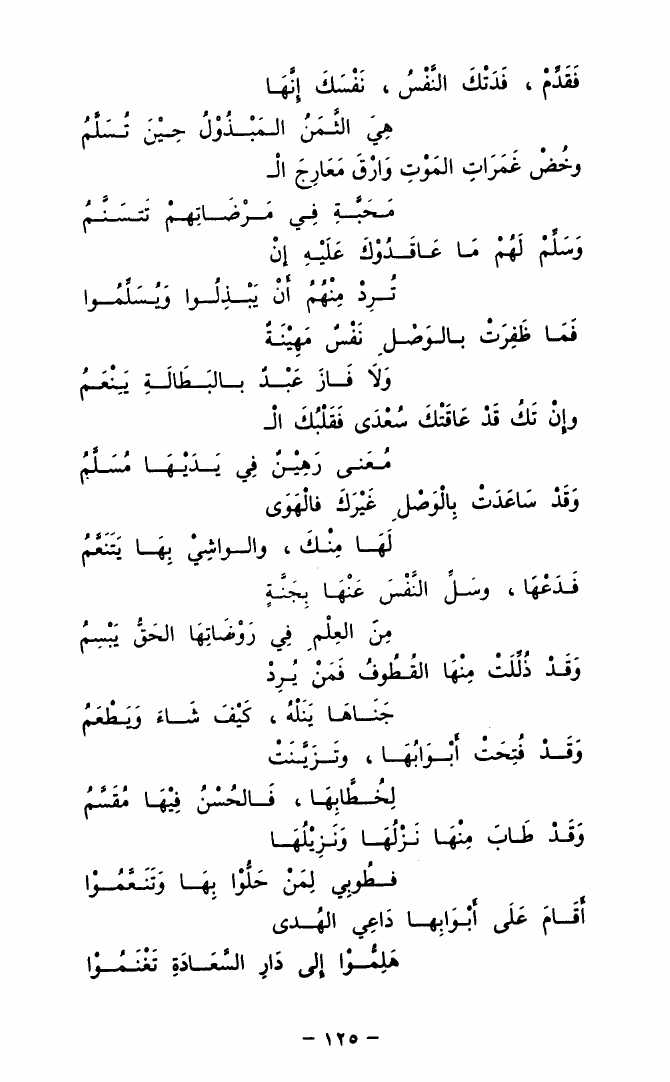 فَقَدِّمْ ، فَدَتْكَ النَّفْسُ ، نَفْسَكَ إِنَّهَا
هِيَ الثَّمَنُ المَبْذُولُ حِيْنَ تُسَلَّمُ
وخُضْ غَمَرَاتِ المَوْتِ وَارْقَ مَعَارِجَ الـ
مَحَبَّةِ فِي مَرْضَاتِهِمْ تَتَسَنَّمُ
وَسَلِّمْ لَهُمْ مَا عَاقَدُوْكَ عَلَيْهِ إِنْ
تُرِدْ مِنْهُمُ أَنْ يَبْذِلُوا وَيُسَلِّمُوا
فَمَا ظَفِرَتْ بِالوَصْلِ نَفْسٌ مَهِيْنَةٌ
وَلَا فَازَ عَبْدٌ بِالبَطَالَةِ يَنْعَمُ
وإِنْ تَكُ قَدْ عَاقَتْكَ سُعْدَى فَقَلْبُكَ الـ
مُعَنى رَهِيْنٌ فِي يَدَيْهَا مُسَلَّمُ
وَقَدْ سَاعَدَتْ بِالْوَصْلِ غَيْرَكَ فالْهَوَى
لَهَا مِنْكَ ، والواشِيْ بِهَا يَتَنَعَّمُ
فَدَعْهَا ، وسَلِّ النَّفْسَ عَنْهَا بِجَنَّةٍ
مِنَ العِلْمِ فِي رَوْضَاتِهَا الحَقُّ يَبْسِمُ
وَقَدْ ذُلِّلَتْ مِنْهَا القُطُوفُ فَمَنْ يُرِدْ
جَنَاهَا يَنَلْهُ ، كَيْفَ شَاءَ وَيَطْعَمُ
وَقَدْ فُتِحَتْ أَبْوَابُهَا ، وتَزَيَّنَتْ
لِخُطَّابِهَا ، فَالحُسْنُ فِيْهَا مُقَسَّمُ
وَقَدْ طَابَ مِنْهَا نَزْلُهَا وَنَزِيْلُهَا
فطُوبِي لِمَنْ حَلُّوْا بِهَا وَتَنَعَّمُوْا
أَقَامَ عَلَى أَبْوَابِها دَاعِي الهُدى
هَلِمُّوْا إِلى دَارِ السَّعَادَةِ تَغْنَمُوْا
– ١٢٥ –